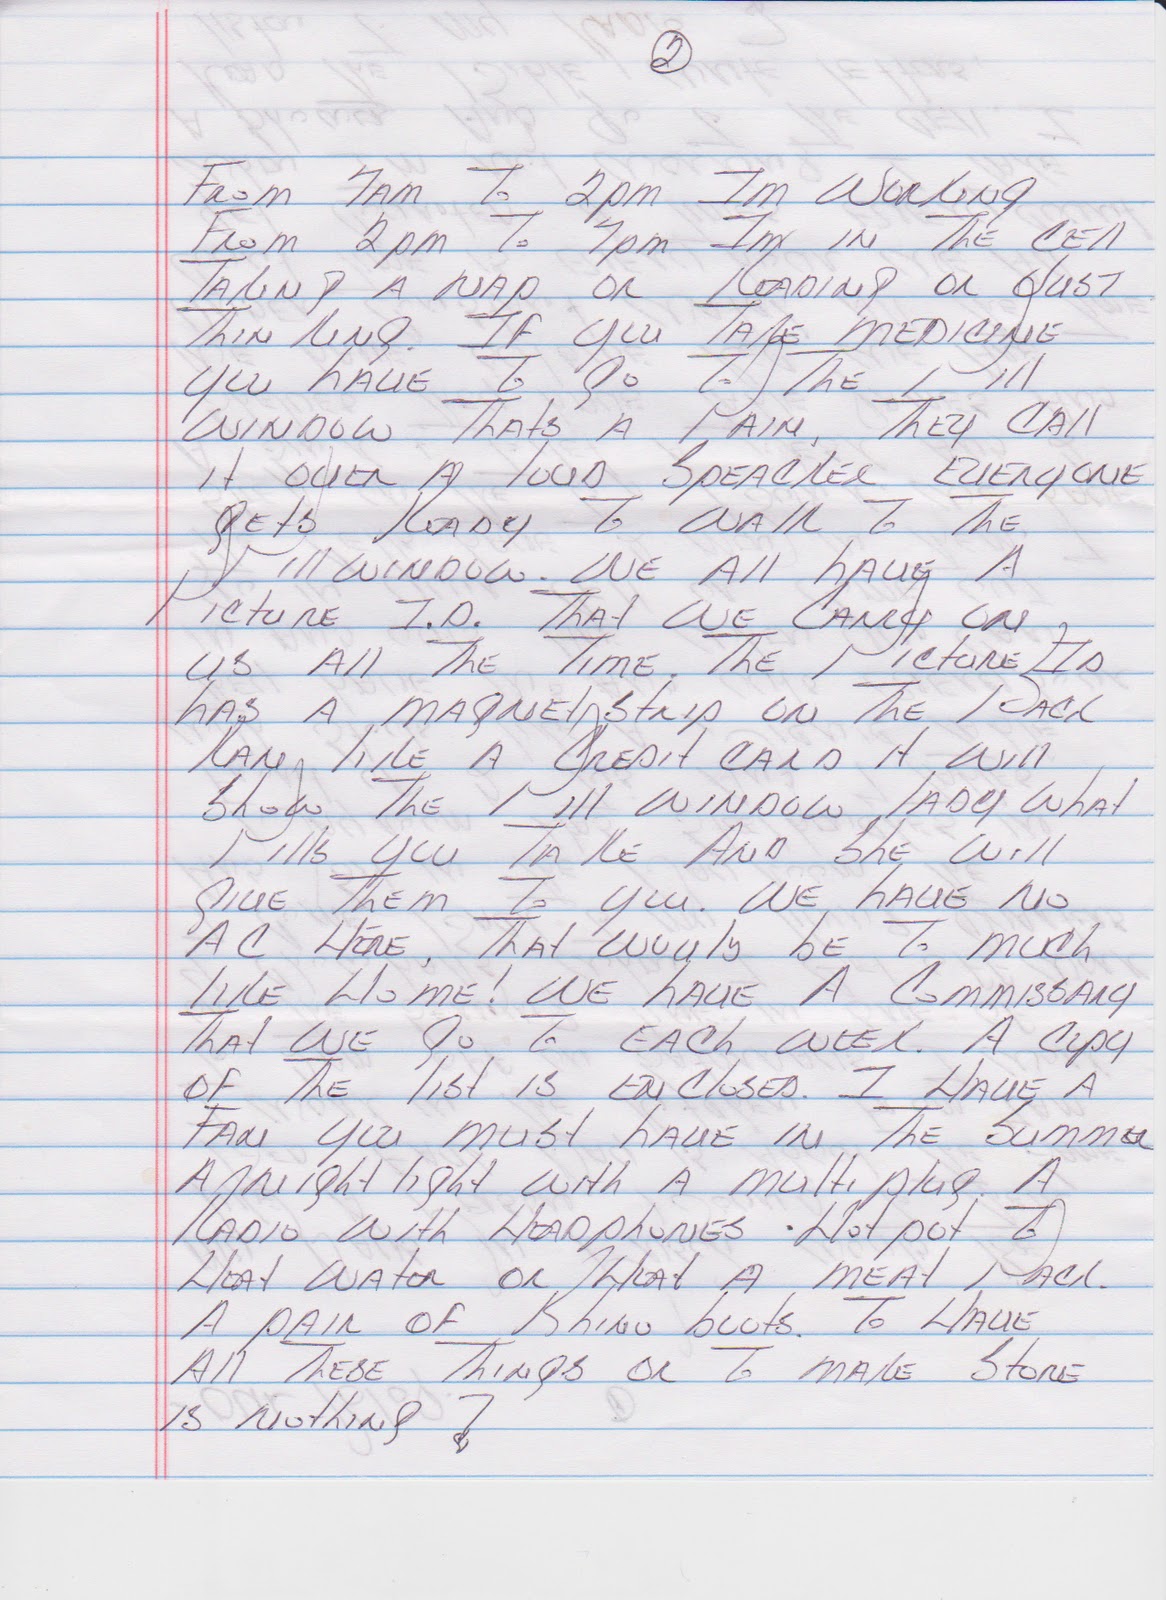 2
From 7AM To 2pm Im Working
From 2pm To 7pm Im in The Cell
Taking A nap or Reading or Just
Thinking. If you Take medicine
you have To go To The Pill
window Thats A Pain, They Call
it over A loud Speacker Everyone
gets Ready To walk To The
Pill window. We All have A
Picture I.D. That we Carry on
us All The Time. The Picture ID
has A magnet strip on The Back
like A Credit card it will
Show The Pill window lady what
Pills you Take And She will
give Them To you. We have no
AC Here, That would be To much
like Home! We have A Commissary
That we go To Each week. A copy
of The list is Enclosed. I Have A
Fan you must have in The Summer
A night light with A multi plug. A
Radio with Headphones. Hot pot To
Heat water or Heat A meat Pack.
A pair of Rhino boots. To Have
All These Things or To make Store
is nothing